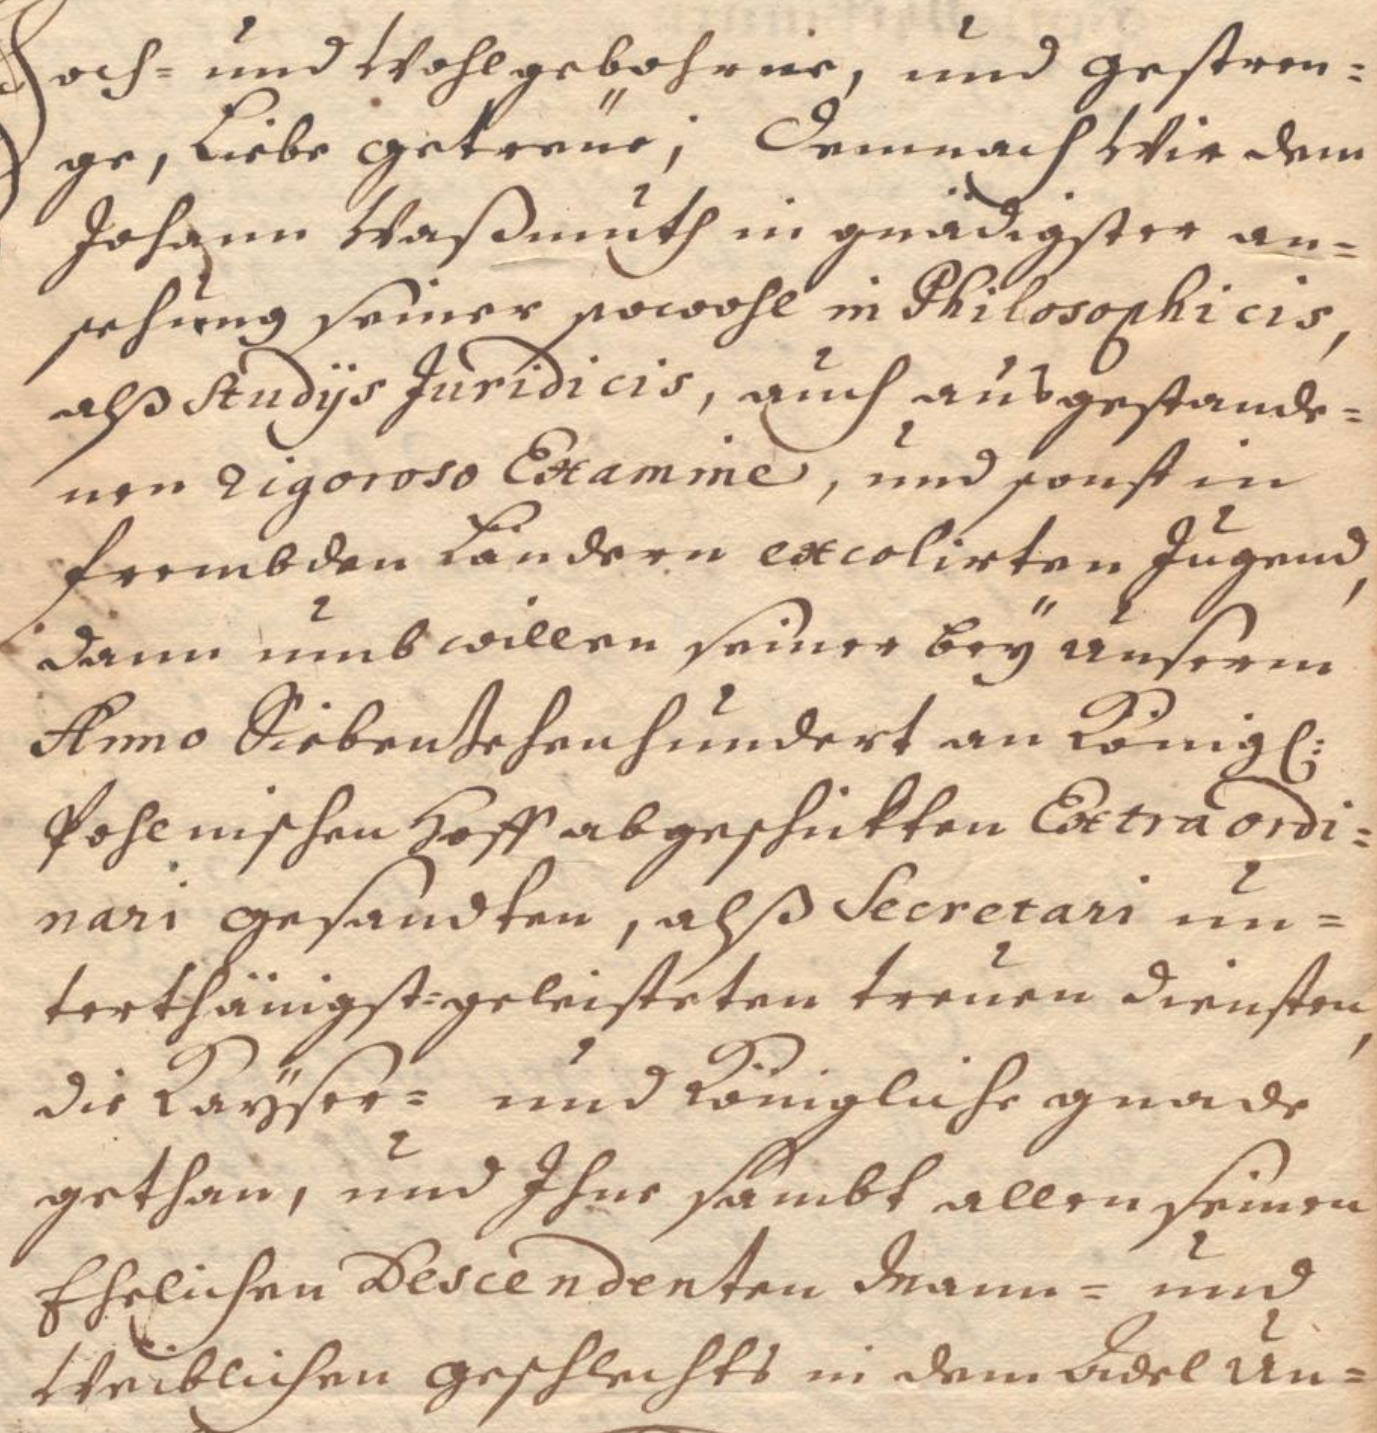 Hoch- und Wohlgebohrne, und gestren=
ge, Liebe getreüe; Demnach Wir dem
Johann Waßmuth in gnädigster an=
sehung seiner sowohl in Philosophicis,
alß Studijs Juridicis, auch ausgestande=
nen rigoroso Examine, und sonst in
frembden Ländern excolirten Jugend,
dann umb willen seiner beÿ Unserm
Anno Siebenzehenhundert an Königl:
Pohlnischen Hoff abgeschikten Extraordi=
nari gesandten, alß Secretari un=
terthänigst=geleisteten treuen diensten,
die Kaÿser= und Königliche gnade
gethan, und Ihne sambt allen seinen
Ehelichen Descendenten Mann= und
Weiblichen geschlechts in dem Adel Un=